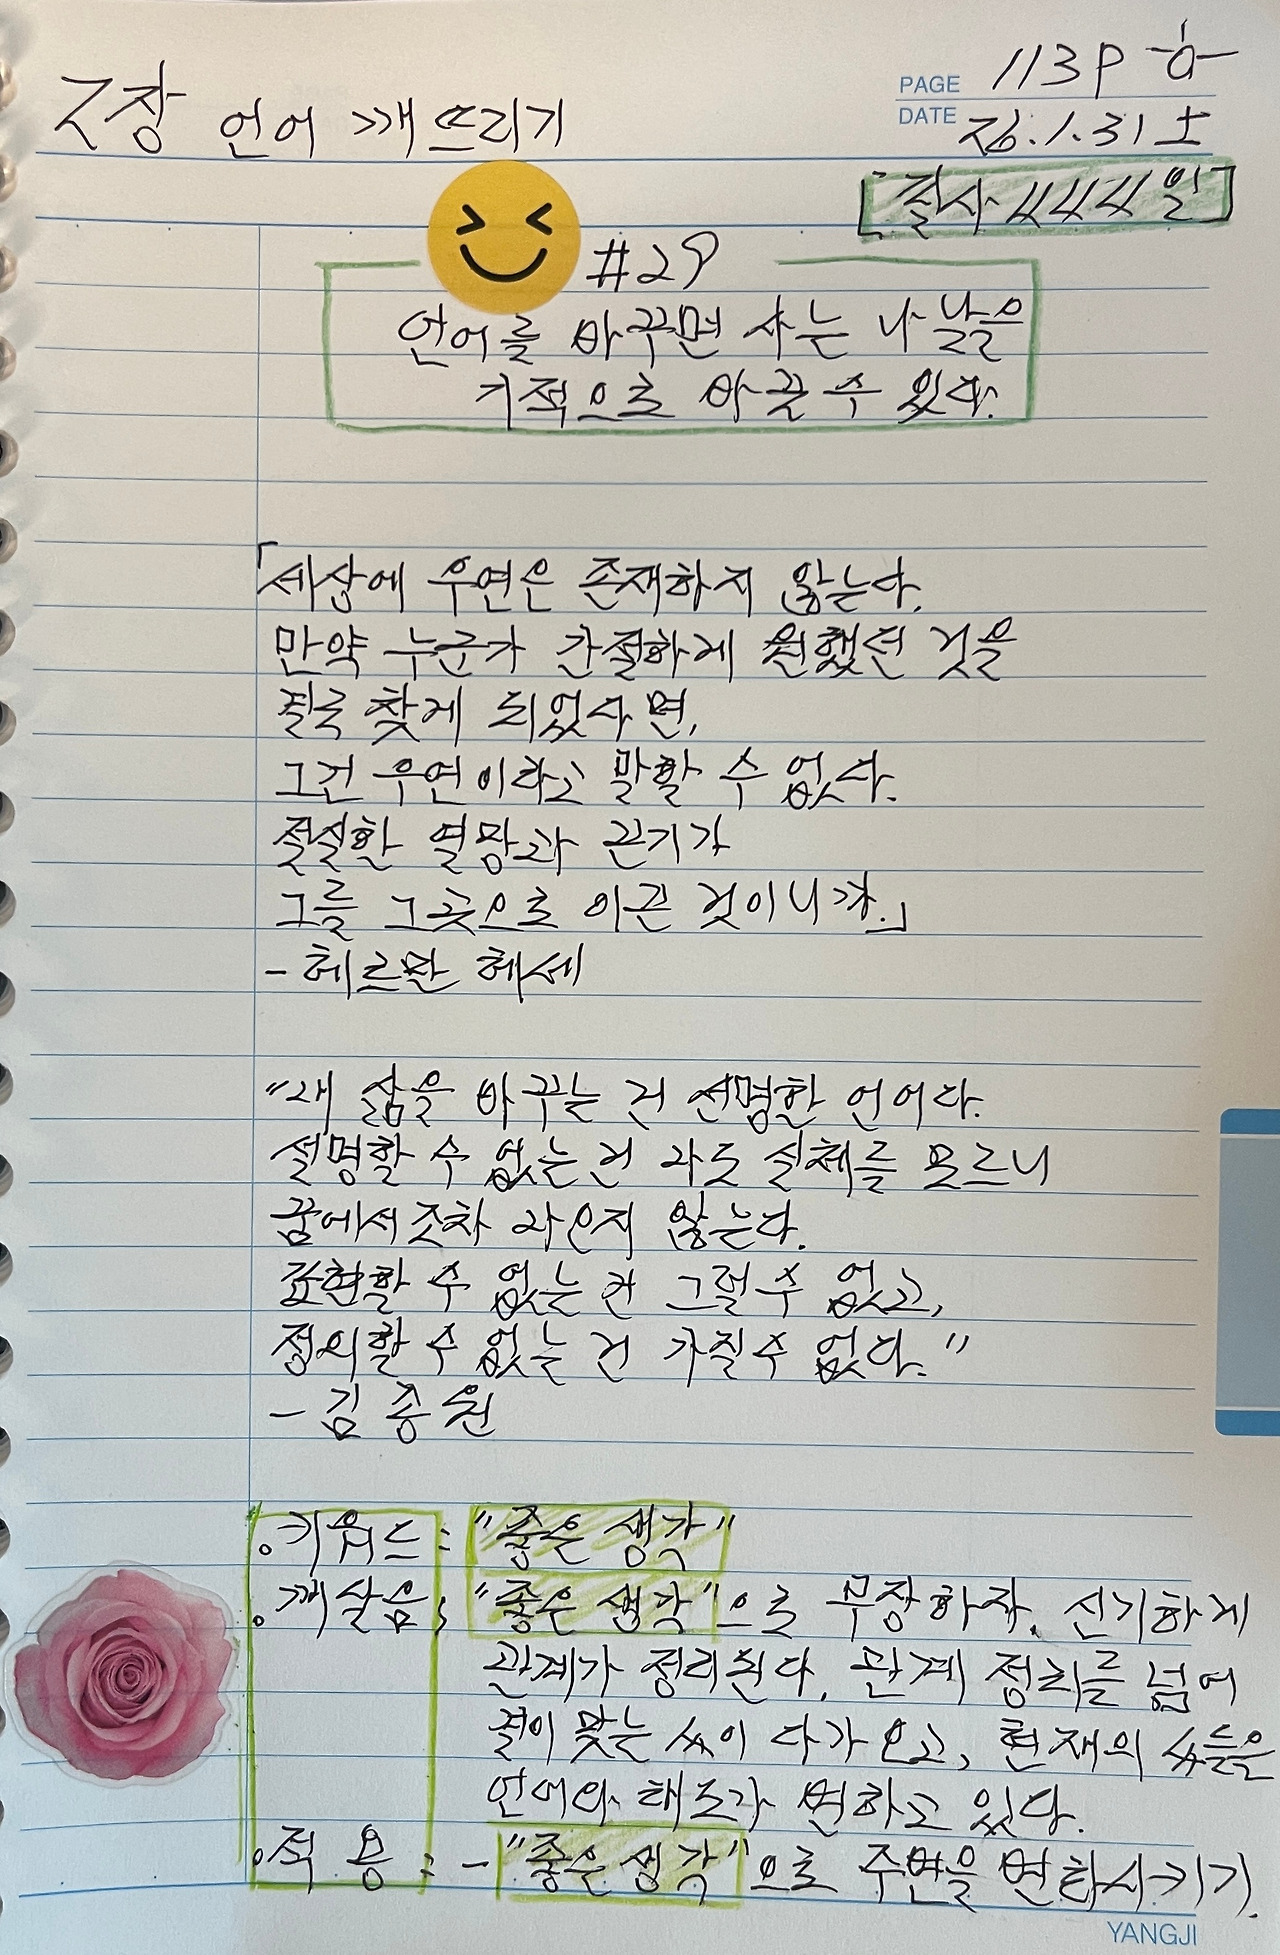 2장 언어 깨뜨리기
PAGE 113P
DATE 26.1.31 土
[필사 444일]
#29
언어를 바꾸면 사는 나날을
기적으로 바꿀 수 있다.
「세상에 우연은 존재하지 않는다.
만약 누군가 간절하게 원했던 것을
결국 찾게 되었다면,
그건 우연이라고 말할 수 없다.
절실한 열망과 끈기가
그를 그곳으로 이끈 것이니까.」
- 헤르만 헤세
"내 삶을 바꾸는 건 선명한 언어다.
설명할 수 없는 건 나도 실체를 모르니
꿈에서조차 나오지 않는다.
표현할 수 없는 건 그럴 수 없고,
정의할 수 없는 건 가질 수 없다."
- 김종원
.키워드: "좋은 생각"
.깨달음: "좋은 생각"으로 무장하자. 신기하게
관계가 정리된다. 관계 정리를 넘어
결이 맞는 人이 다가오고, 현재의 人들을
언어와 태도가 변하고 있다.
.적용: - "좋은 생각"으로 주변을 변화시키기.
YANGJI